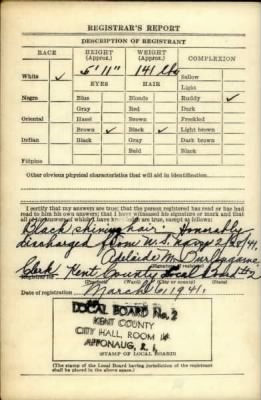 REGISTRAR'S REPORT
DESCRIPTION OF REGISTRANT
RACE
HEIGHT
(Approx.)
WEIGHT
(Approx.)
COMPLEXION
White ✓
5' 11"
141 lbs
Sallow
EYES
HAIR
Light
Negro
Blue
Blonde
Ruddy ✓
Gray
Red
Dark
Oriental
Hazel
Brown
Freckled
Brown ✓
Black ✓
Light brown
Indian
Black
Gray
Dark brown
Bald
Black
Filipino
Other obvious physical characteristics that will aid in identification
I certify that my answers are true; that the person registered has read or has had
read to him his own answers; that I have witnessed his signature or mark and that
all of his answers of which I have knowledge are true, except as follows:
Black shining hair. Honorably
discharged from U.S. Navy 2/28/41.
Adelaide M. Burlingame
(Signature of registrar)
Clerk Kent County Local Board #2
(Precinct) (Ward) (City or county) (State)
Date of registration March 6, 1941.
LOCAL BOARD No. 2
KENT COUNTY
CITY HALL, ROOM 14
APPONAUG, R. I.
(STAMP OF LOCAL BOARD)
(The stamp of the Local Board having jurisdiction of the registrant
shall be placed in the above space.)